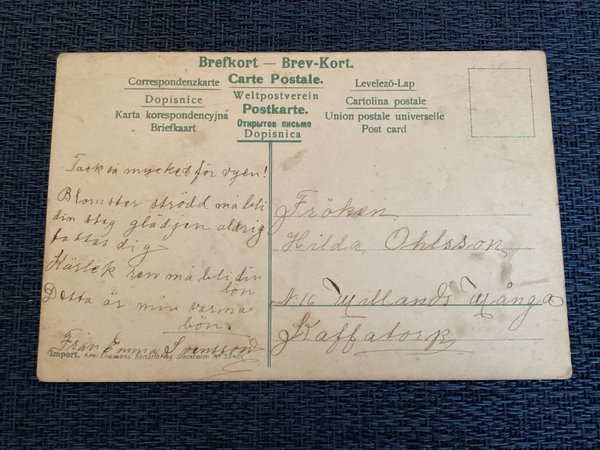 Brefkort — Brev-Kort.
Correspondenzkarte
Carte Postale.
Levelező-Lap
Dopisnice
Weltpostverein
Cartolina postale
Karta korespondencyjna
Postkarte.
Union postale universelle
Briefkaart
Открытое письмо
Post card
Dopisnica
Tack så mycked för vyen!
Blomster strödd må bli
din stig glädjen aldrig
fattas dig
Kärlek ren må bli din
lön
Detta är min varma
bön.
Från Emma Svensson
Import. Axel Eliassons Konstförlag Stockholm Nº 3940
Fröken
Hilda Ohlsson
N:16
Kaffatorp